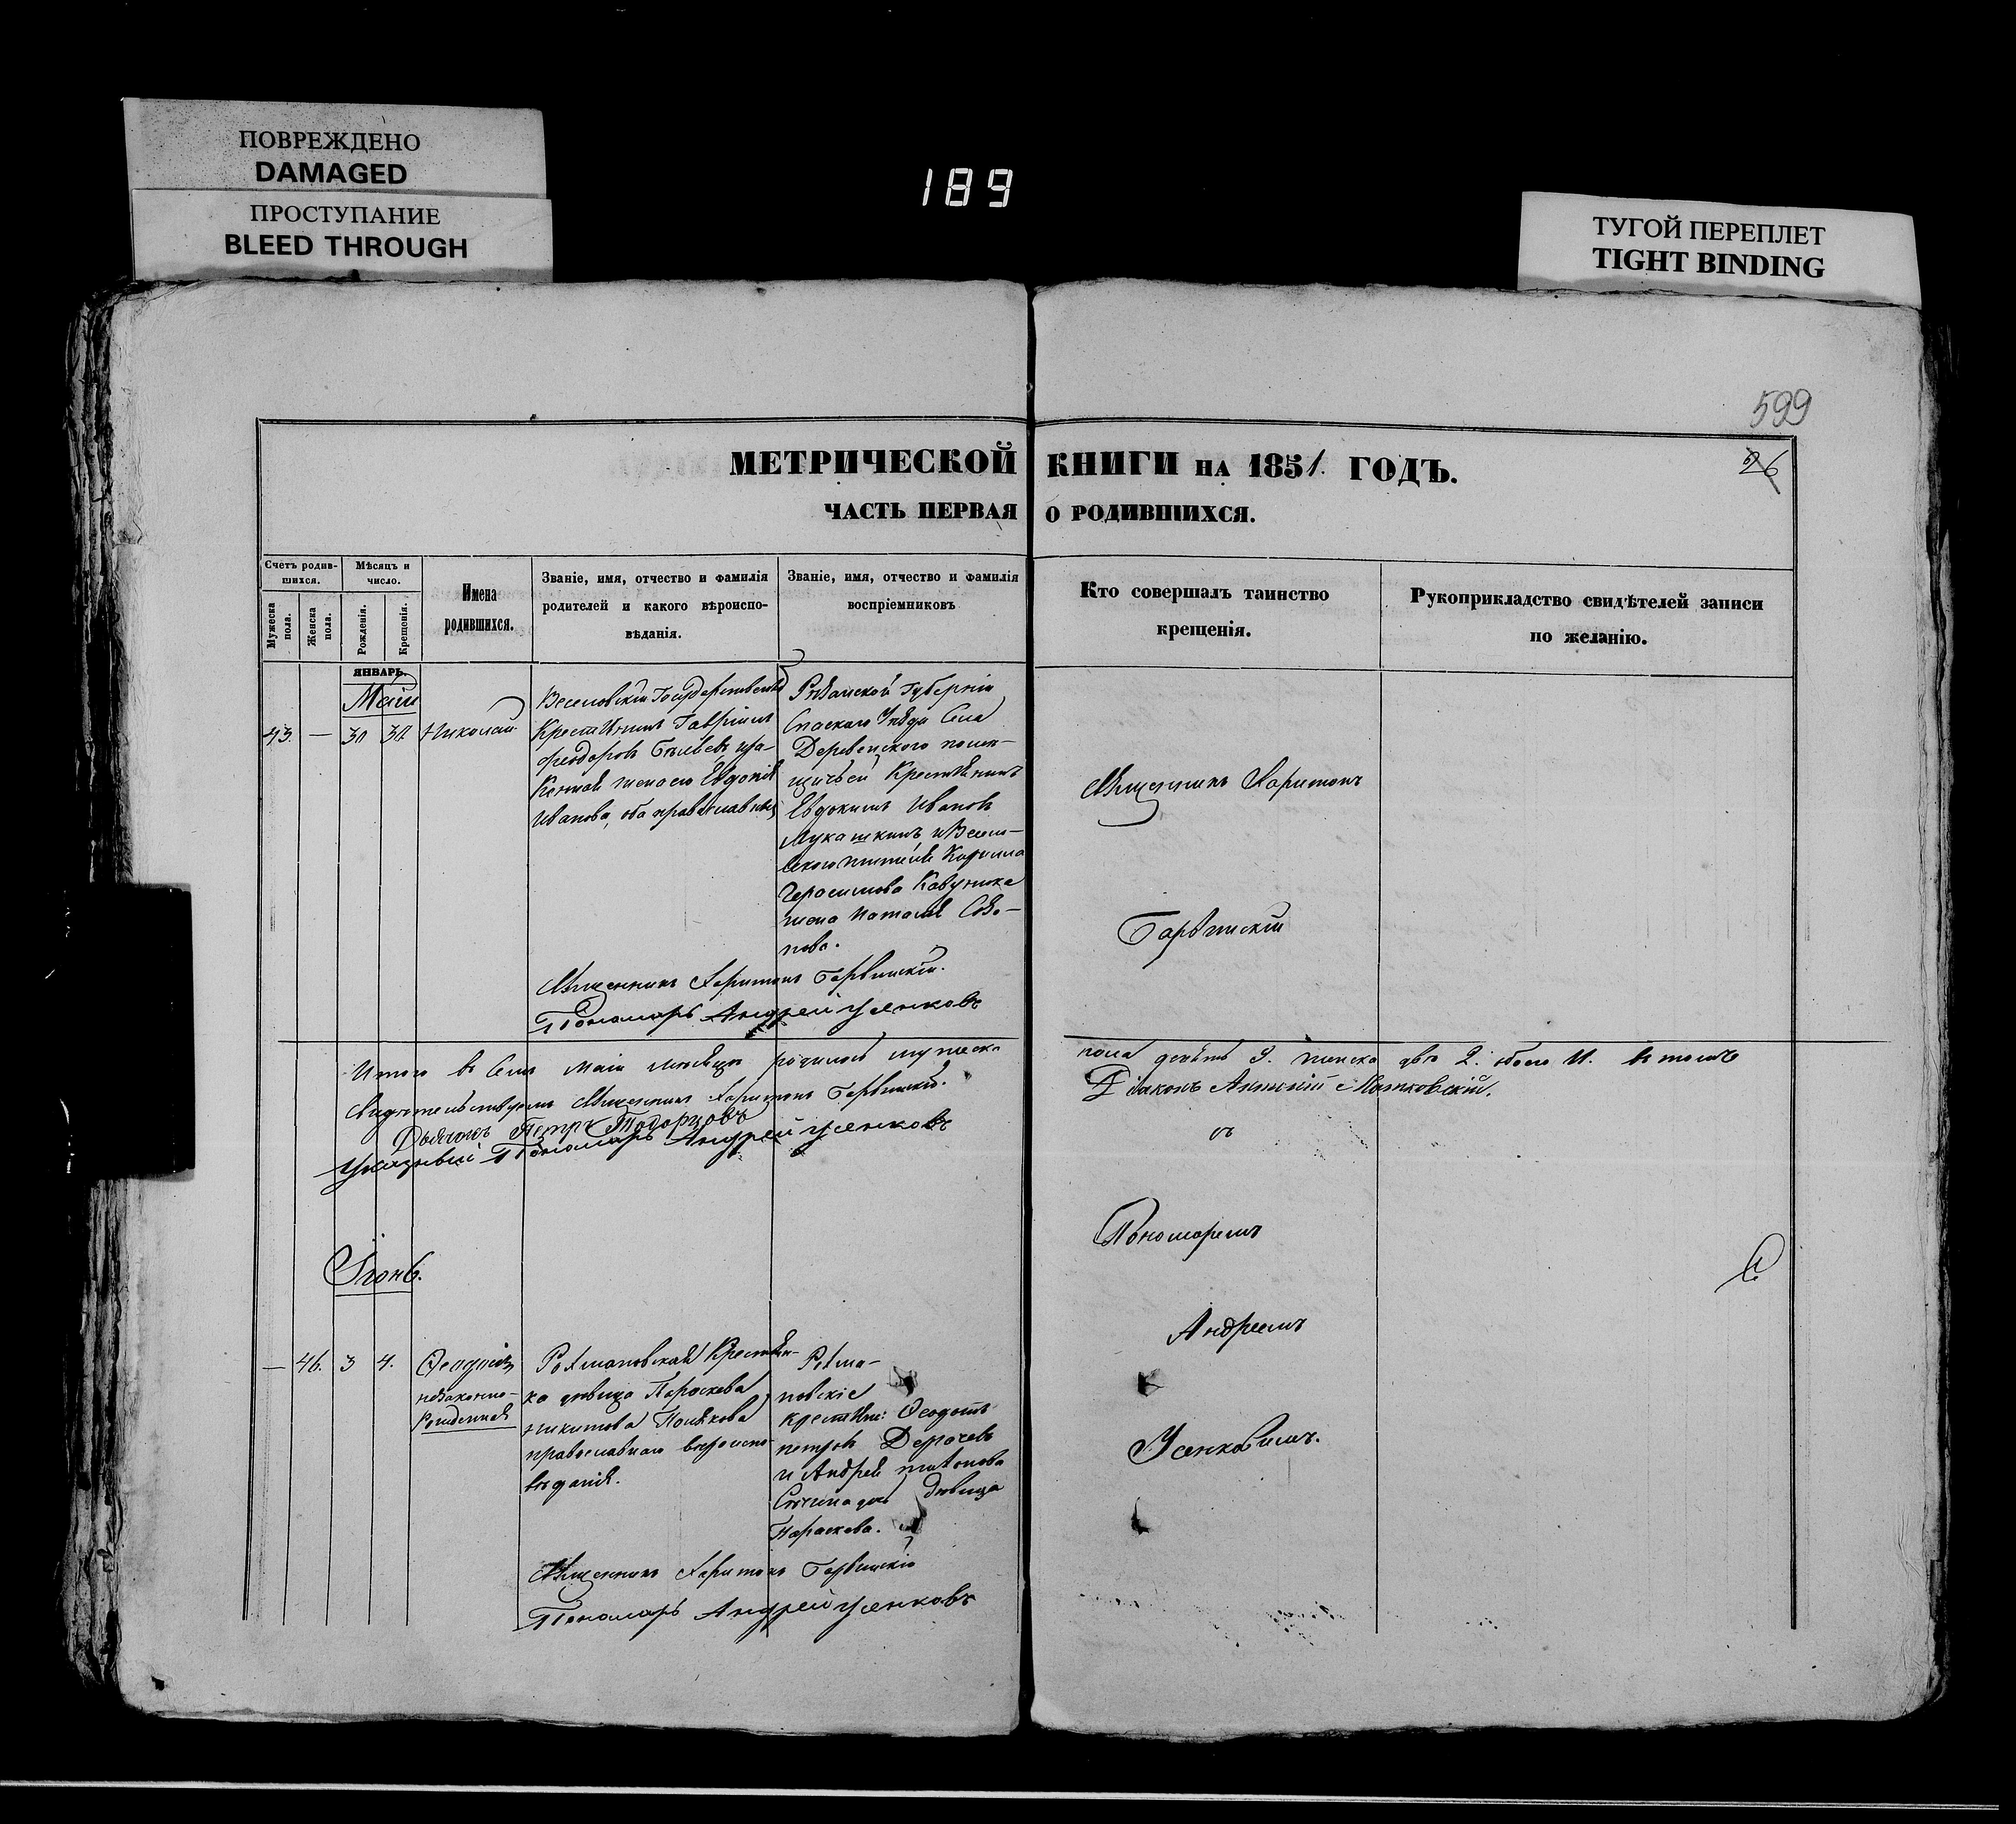 ПОВРЕЖДЕНО
DAMAGED
ПРОСТУПАНИЕ
BLEED THROUGH
189
ТУГОЙ ПЕРЕПЛЕТ
TIGHT BINDING
599
26
МЕТРИЧЕСКОЙ КНИГИ НА 1851. ГОДЪ.
ЧАСТЬ ПЕРВАЯ О РОДИВШИХСЯ.
Счетъ родив-
шихся.
Мужеска пола.
Женска пола.
Мѣсяцъ и
число.
Рожденія.
Крещенія.
Имена
родившихся.
Званіе, имя, отчество и фамилія
родителей и какого вѣроиспо-
вѣданія.
Званіе, имя, отчество и фамилія
воспріемниковъ
Кто совершалъ таинство
крещенія.
Рукоприкладство свидѣтелей записи
по желанію.
ЯНВАРЬ.
Маій
43. — 30 30 Николай
Веселовскій Государственный
Крестьянинъ Гавріилъ
Феодоровъ Бѣляевъ и за-
конная жена его Евдокія
Иванова, оба православные
Рязанской Губерніи
Спаскаго Уѣзда Села
Деревенского помѣ-
щичьей Крестьянинъ
Евдокимъ Ивановъ
Мукашкинъ и Весело-
вскаго жителя
Герасимова
жена Наталія Созо-
нова.
Священникъ Харитонъ
Священникъ Харитонъ
Пономарь Андрей Усенковъ
Итого въ Семъ Маіи мѣсяцѣ родилось мужеска
пола девять 9. женска два 2. обоего 11. въ томъ
свидѣтельствуемъ Священникъ Харитонъ
Діаконъ
Дьячокъ Петръ
Указный Пономарь Андрей Усенковъ
съ
Пономаремъ
Андреемъ
Усенковымъ.
Іюнь.
— 46. 3 4. Феодосія
незаконно-
рожденная
Рохмановская Крестьян-
ка дѣвица Параскева
Никитова Полякова
православнаго вѣроиспо-
вѣданія.
Рохма-
новскіе
крестьяне: Феодотъ
Петровъ Дерачевъ
и Андрея Тихонова
дочь дѣвица
Параскева.
Священникъ Харитонъ
Пономарь Андрей Усенковъ